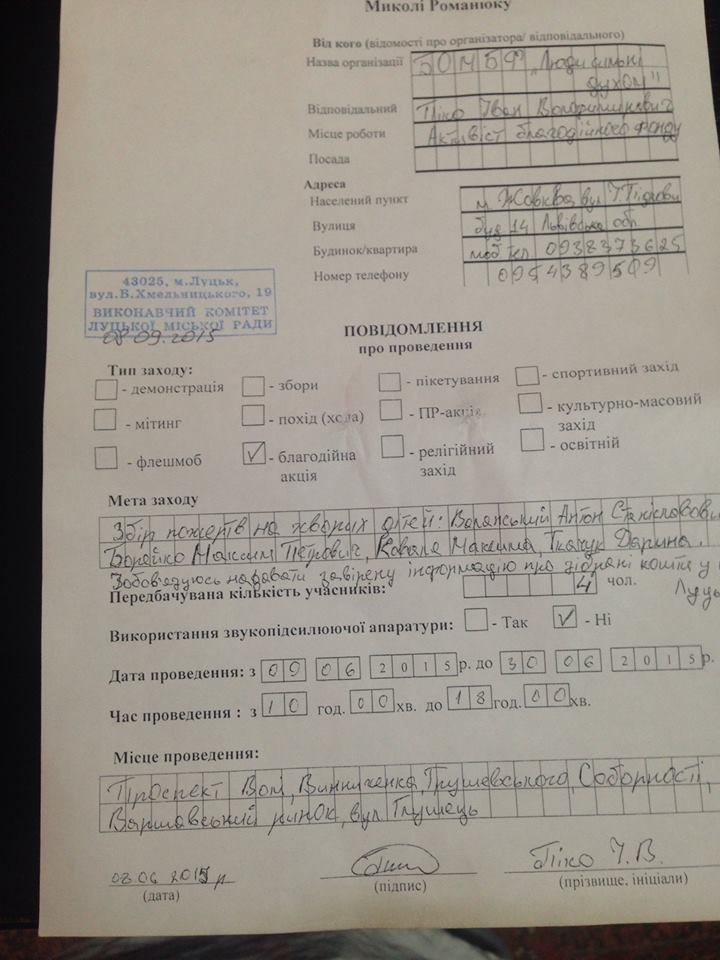 Миколі Романюку
Від кого (відомості про організатора/ відповідального)
Назва організації БО МБФ „Люди сильні
духом"
Відповідальний Піко Іван Володимирович
Місце роботи Активіст благодійного фонду
Посада
Адреса
Населений пункт м. Жовква вул
Вулиця буд 14 Львівська обл.
Будинок/квартира моб тел 0938373625
Номер телефону 0954389509
43025, м.Луцьк,
вул.Б.Хмельницького, 19
ВИКОНАВЧИЙ КОМІТЕТ
ЛУЦЬКОЇ МІСЬКОЇ РАДИ
08.09.2015
ПОВІДОМЛЕННЯ
про проведення
Тип заходу:
- демонстрація - збори - пікетування - спортивний захід
- мітинг - похід (хода) - ПР-акція - культурно-масовий
захід
- флешмоб - благодійна - релігійний - освітній
акція захід
Мета заходу
Збір пожертв на хворих дітей: Волянський Антон Станіславови
Борейко Максим Петрович, Коваля Максима, Ткачук Дарина.
Зобов'язуюсь надавати завірену інформацію про зібрані кошти у
Передбачувана кількість учасників: 4 чол. Луць
Використання звукопідсилюючої апаратури: - Так - Ні
Дата проведення: з 09 06 2015 р. до 30 06 2015 р.
Час проведення : з 10 год. 00 хв. до 18 год. 00 хв.
Місце проведення:
Проспект Волі, Винниченка, Грушевського, Соборності,
Варшавський ринок, вул Глушець
08.06 2015 р Піко І. В.
(дата) (підпис) (прізвище, ініціали)